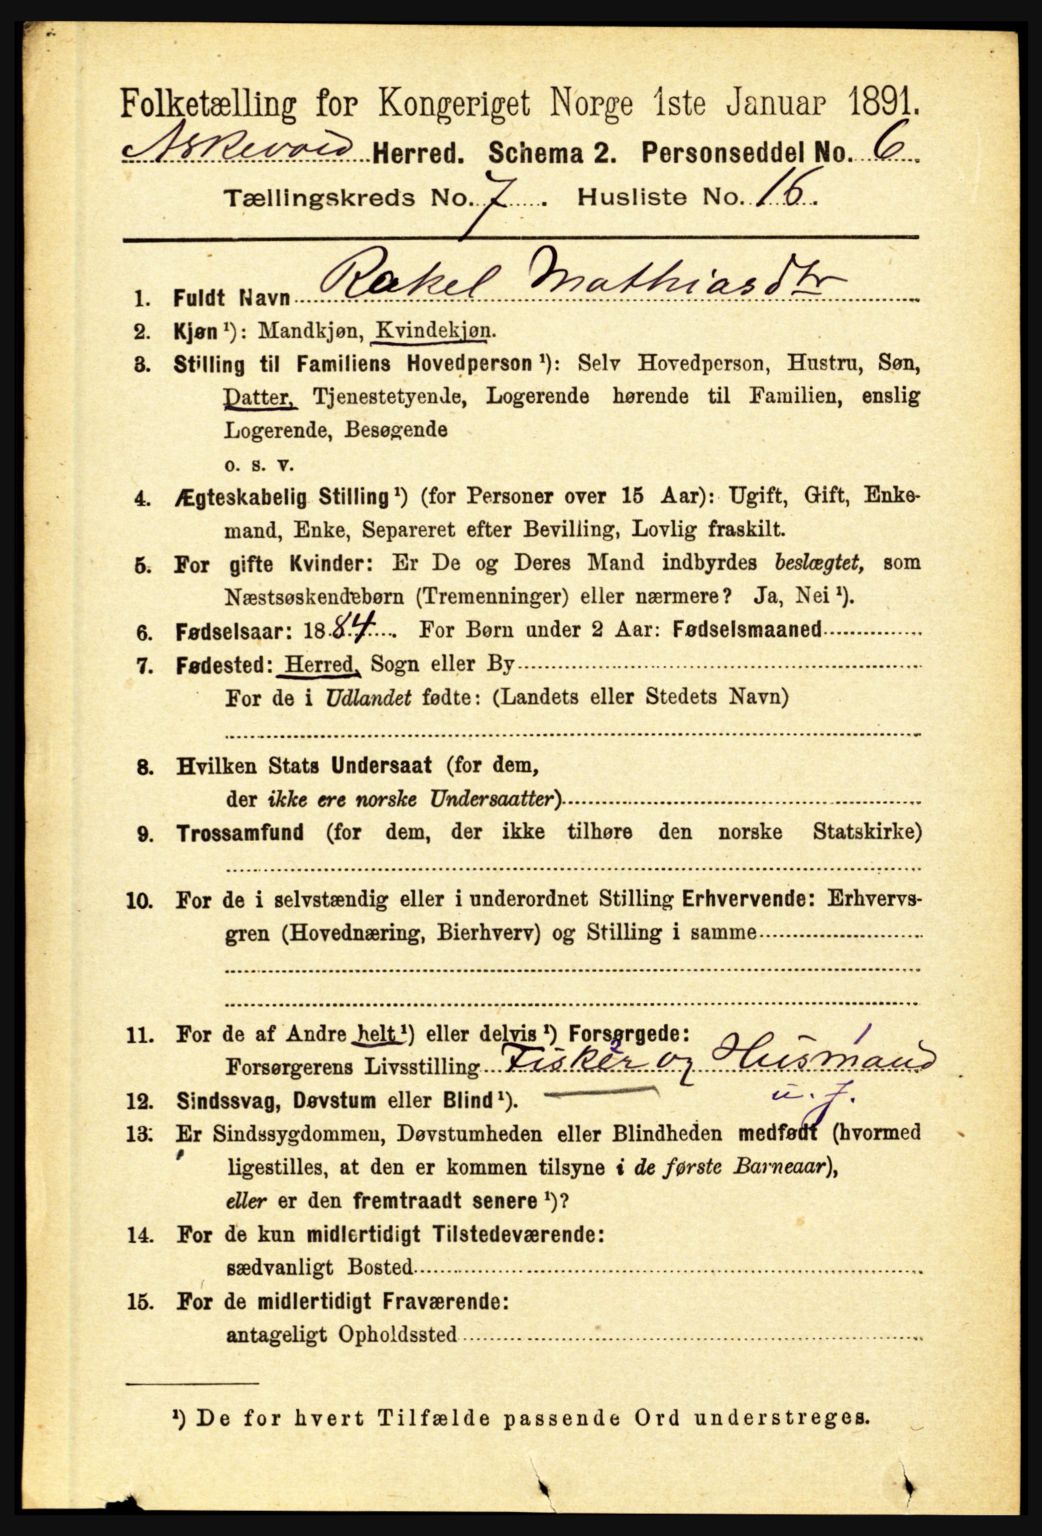 Folketælling for Kongeriget Norge 1ste Januar 1891.
Askevold Herred. Schema 2. Personseddel No. 6
Tællingskreds No. 7. Husliste No. 16.
1. Fuldt Navn Rakel Mathiasdtr
2. Kjøn ¹): Mandkjøn, Kvindekjøn.
3. Stilling til Familiens Hovedperson ¹): Selv Hovedperson, Hustru, Søn,
Datter, Tjenestetyende, Logerende hørende til Familien, enslig
Logerende, Besøgende
o. s. v.
4. Ægteskabelig Stilling ¹) (for Personer over 15 Aar): Ugift, Gift, Enke-
mand, Enke, Separeret efter Bevilling, Lovlig fraskilt.
5. For gifte Kvinder: Er De og Deres Mand indbyrdes beslægtet, som
Næstsøskendebørn (Tremenninger) eller nærmere? Ja, Nei ¹).
6. Fødselsaar: 1884. For Børn under 2 Aar: Fødselsmaaned
7. Fødested: Herred, Sogn eller By
For de i Udlandet fødte: (Landets eller Stedets Navn)
8. Hvilken Stats Undersaat (for dem,
der ikke ere norske Undersaatter)
9. Trossamfund (for dem, der ikke tilhøre den norske Statskirke)
10. For de i selvstændig eller i underordnet Stilling Erhvervende: Erhvervs-
gren (Hovednæring, Bierhverv) og Stilling i samme
11. For de af Andre helt ¹) eller delvis ¹) Forsørgede:
Forsørgerens Livsstilling Fisker og Husmand
u. J.
12. Sindssvag, Døvstum eller Blind ¹).
13. Er Sindssygdommen, Døvstumheden eller Blindheden medfødt (hvormed
ligestilles, at den er kommen tilsyne i de første Barneaar),
eller er den fremtraadt senere ¹)?
14. For de kun midlertidigt Tilstedeværende:
sædvanligt Bosted
15. For de midlertidigt Fraværende:
antageligt Opholdssted
¹) De for hvert Tilfælde passende Ord understreges.